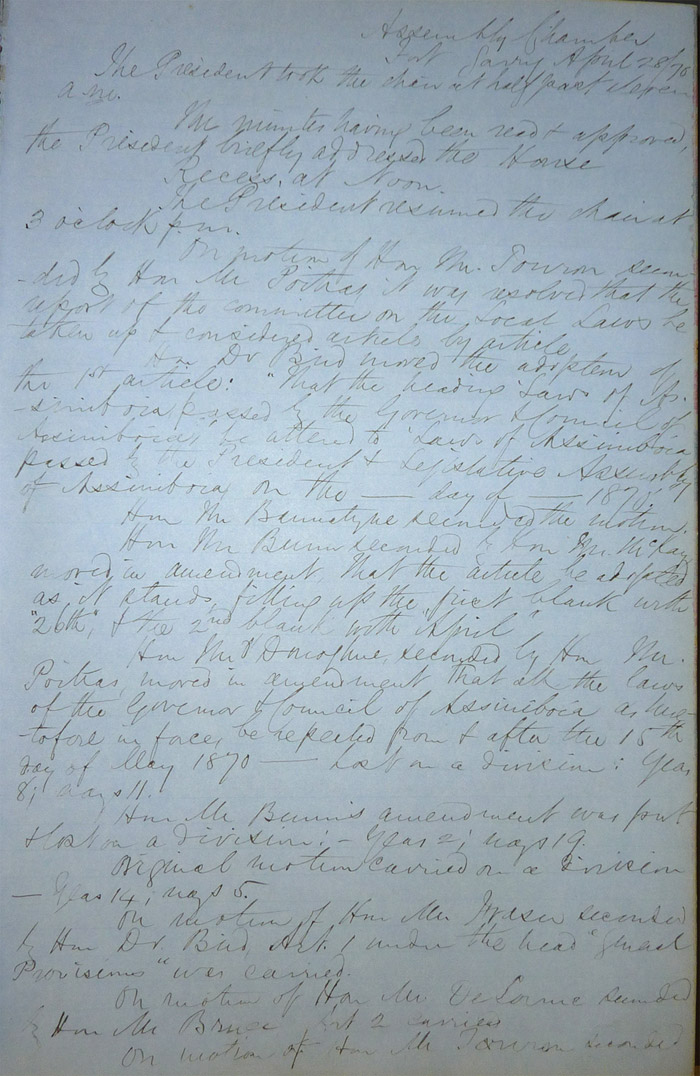 Assembly Chamber
Fort Garry April 28/70
The President took the chair at half past eleven
a.m.
The minutes having been read & approved,
the President briefly addressed the House
Recess at Noon.
The President resumed the chair at
3 o'clock p.m.
On motion of Hon Mr. Touron secon
-ded by Hon Mr Poitras it was resolved that the
report of the committee on the Local Laws be
taken up & considered article by article.
Hon Dr Bird moved the adoption of
the 1st article: "That the heading 'Laws of As-
-siniboia passed by the Governor & Council of
Assiniboia' be altered to 'Laws of Assiniboia
passed by the President & Legislative Assembly
of Assiniboia on the — day of — 1870'."
Hon Mr Bannatyne seconded the motion.
Hon Mr Bunn seconded by Hon Mr. McKay
moved in amendment, That the article be adopted
as it stands, filling up the first blank with
"26th", & the 2nd blank with April"
Hon Mr O'Donoghue, seconded by Hon Mr.
Poitras, moved in amendment that all the laws
of the Governor & Council of Assiniboia as here-
-tofore in force, be repealed from & after the 15th
day of May 1870 — Lost on a division: Yeas
8; nays 11.
Hon Mr Bunn's amendment was put
& lost on a division: - Yeas 2; nays 19.
Original motion carried on a division
— Yeas 14; nays 5.
On motion of Hon Mr Fraser seconded
by Hon Dr. Bird, Art. 1 under the head "General
Provisions" was carried.
On motion of Hon Mr DeLorme seconded
by Hon Mr Bruce Art 2 carried
On motion of Hon Mr Touron seconded